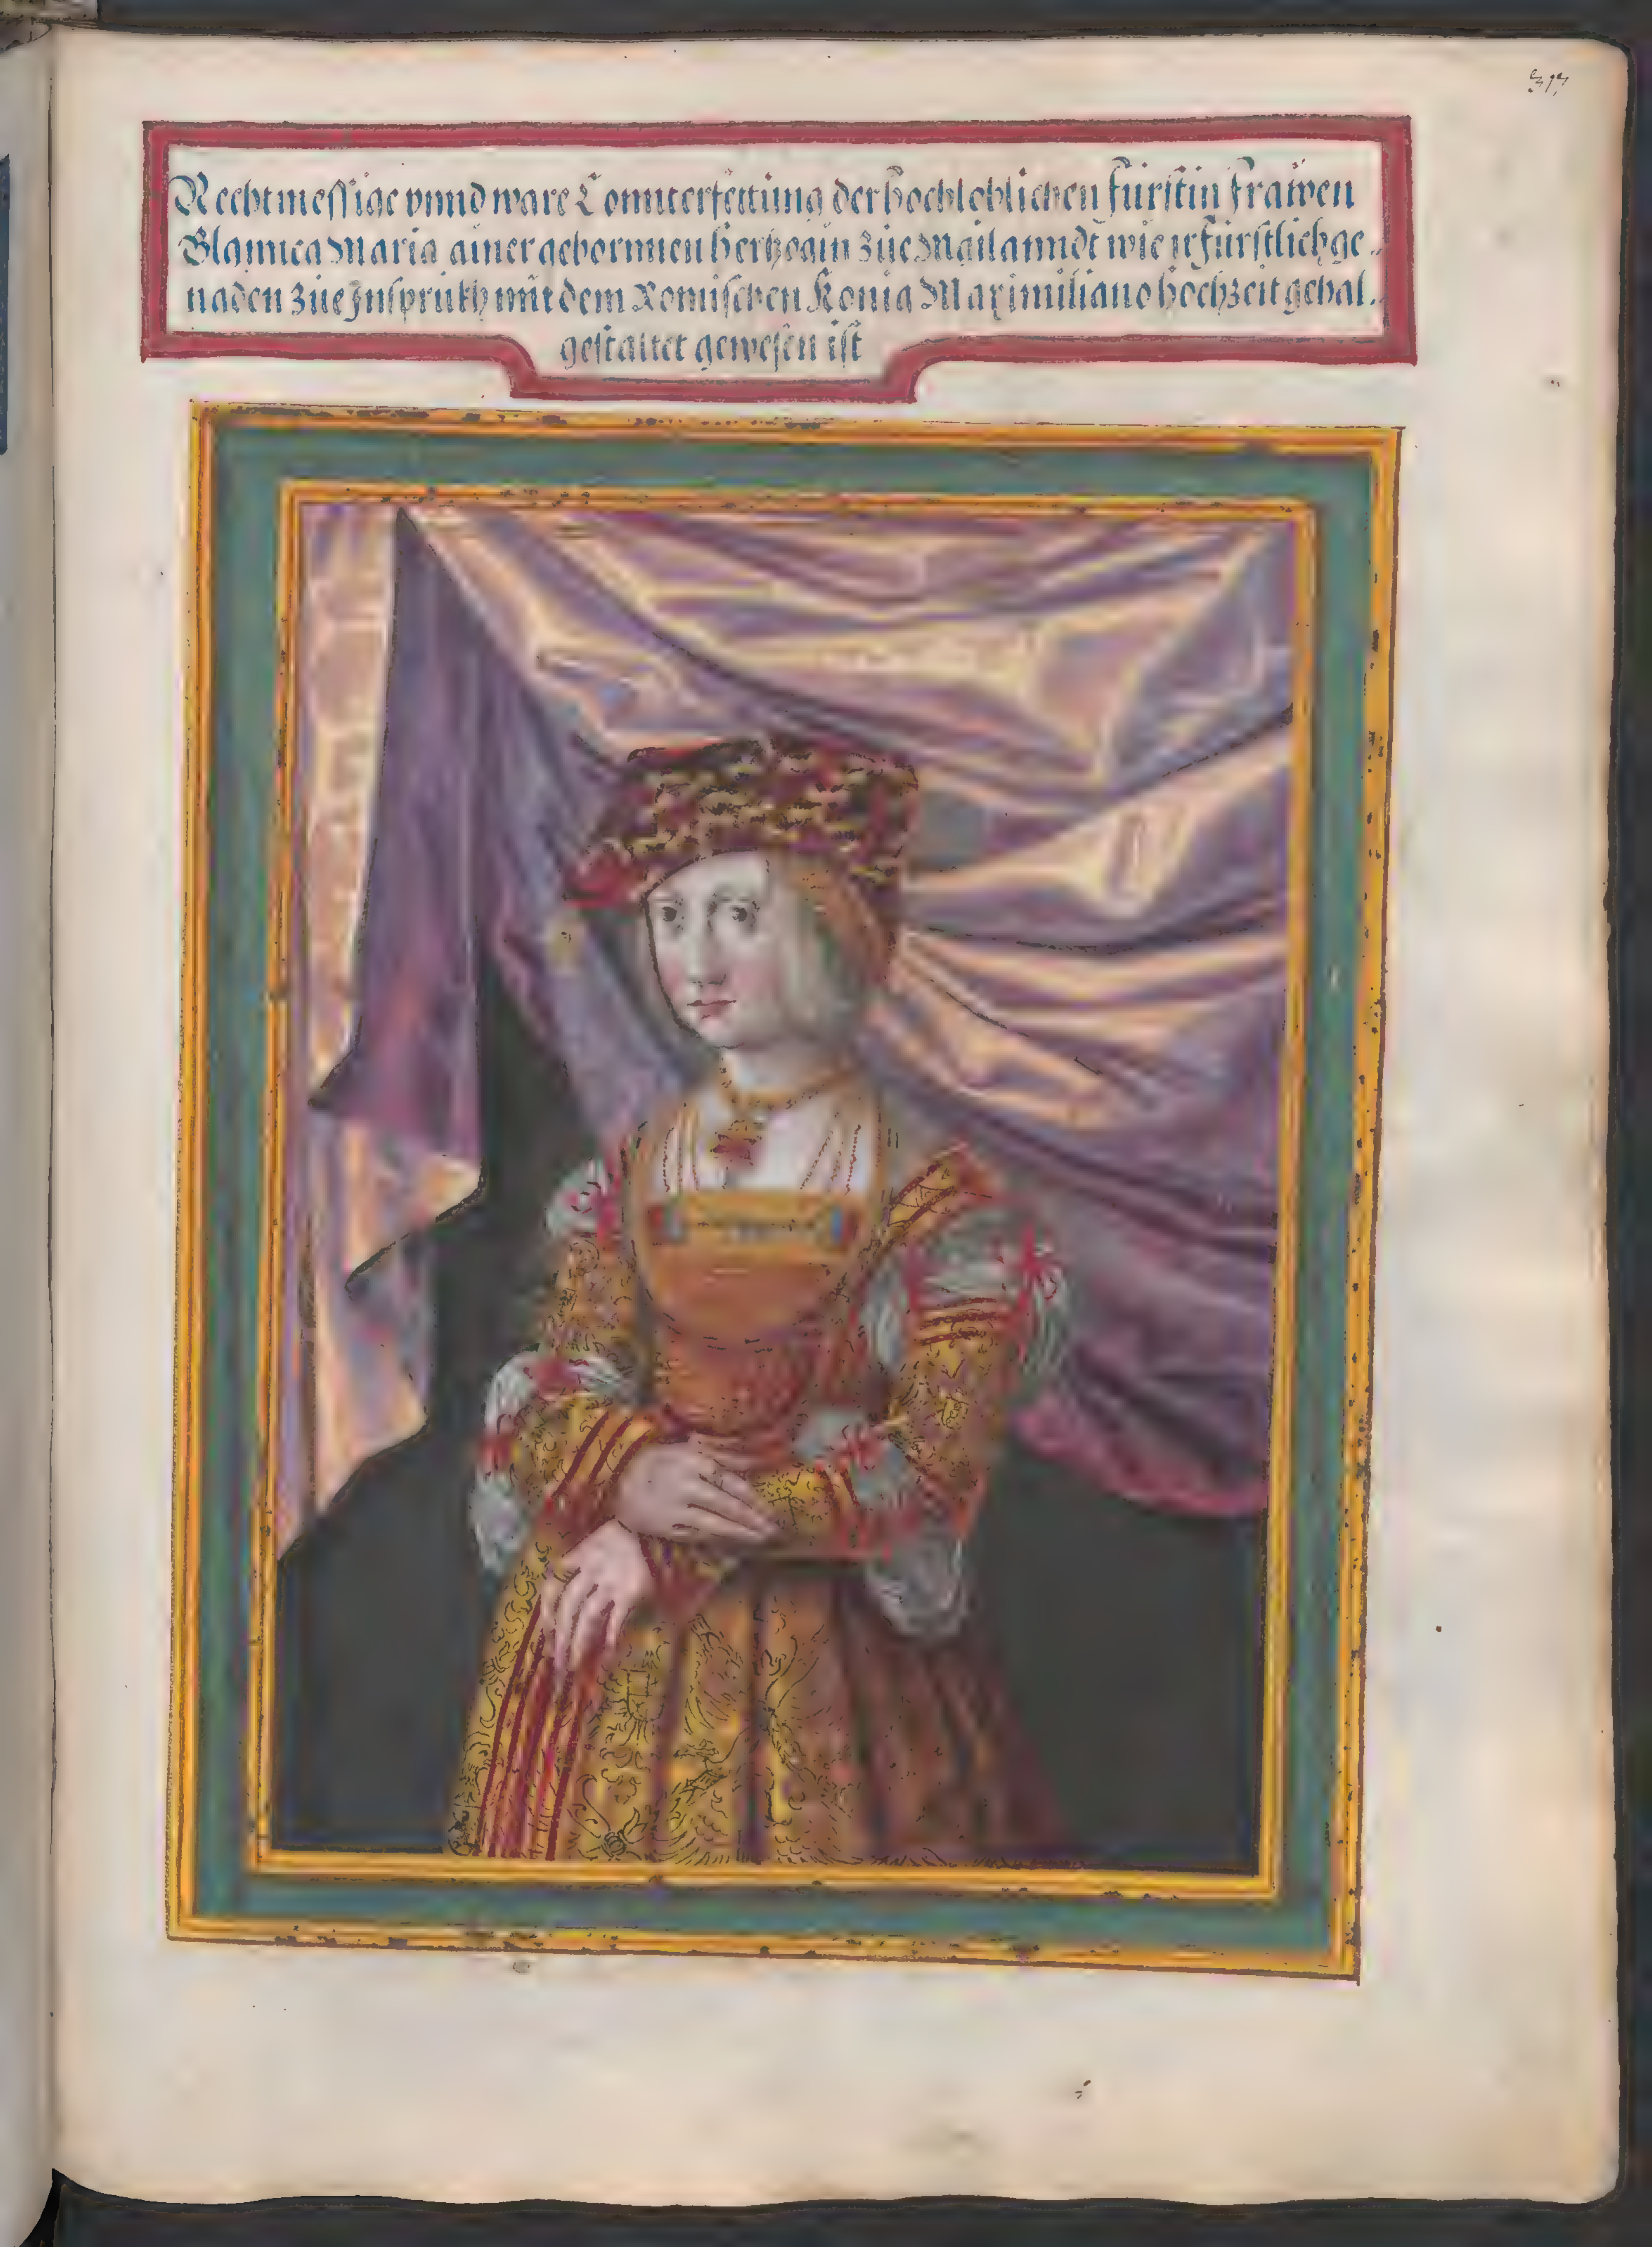 317
Rechtmessige vnnd ware Connterfettung der hochloblichen fürstin frawen
Blannca Maria ainer gebornnen hertzogin züe Mailanndt wie ir fürstlich ge
naden züe Jnsprukh mit dem Romischen Konig Maximiliano hochzeit gehal.
gestaltet gewesen ist